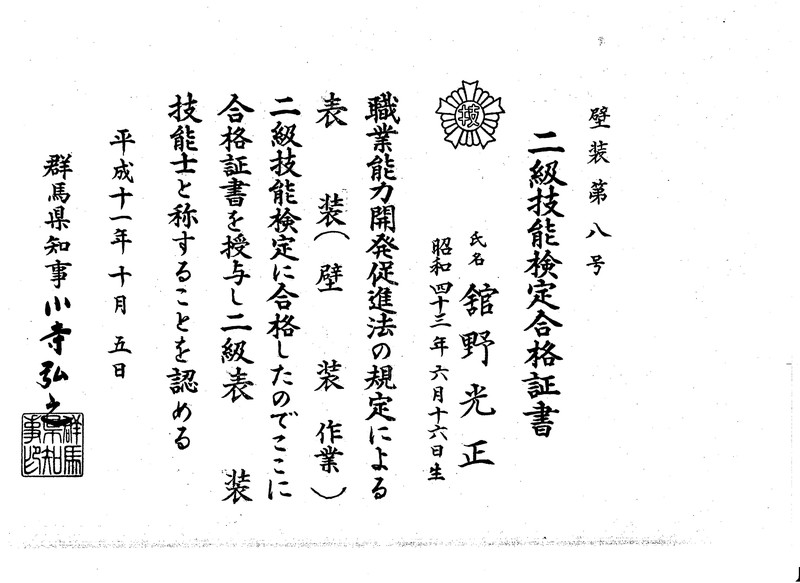 壁装第八号
二級技能検定合格証書
技
氏名 舘野光正
昭和四十三年六月十六日生
職業能力開発促進法の規定による
表装(壁装作業)
二級技能検定に合格したのでここに
合格証書を授与し二級表装
技能士と称することを認める
平成十一年十月五日
群馬県知事 小寺弘之
群馬県知事印